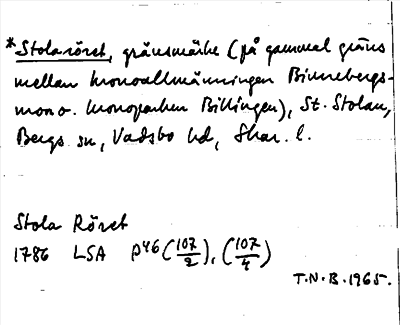 *Stolaröret, gränsmärke (på gammal gräns
mellan kronoallmänningen Binnebergs-
mon o. kronoparken Billingen), St. Stolan,
Bergs sn, Vadsbo hd, Skar. l.
Stola Röret
1786 LSA P46 (107/2), (107/4)
T.N.B. 1965.